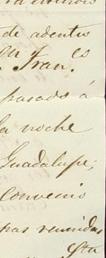 de adentro
en Fran.co
pasado á
la noche
Guadalupe,
convenio
pas reunidas
esta